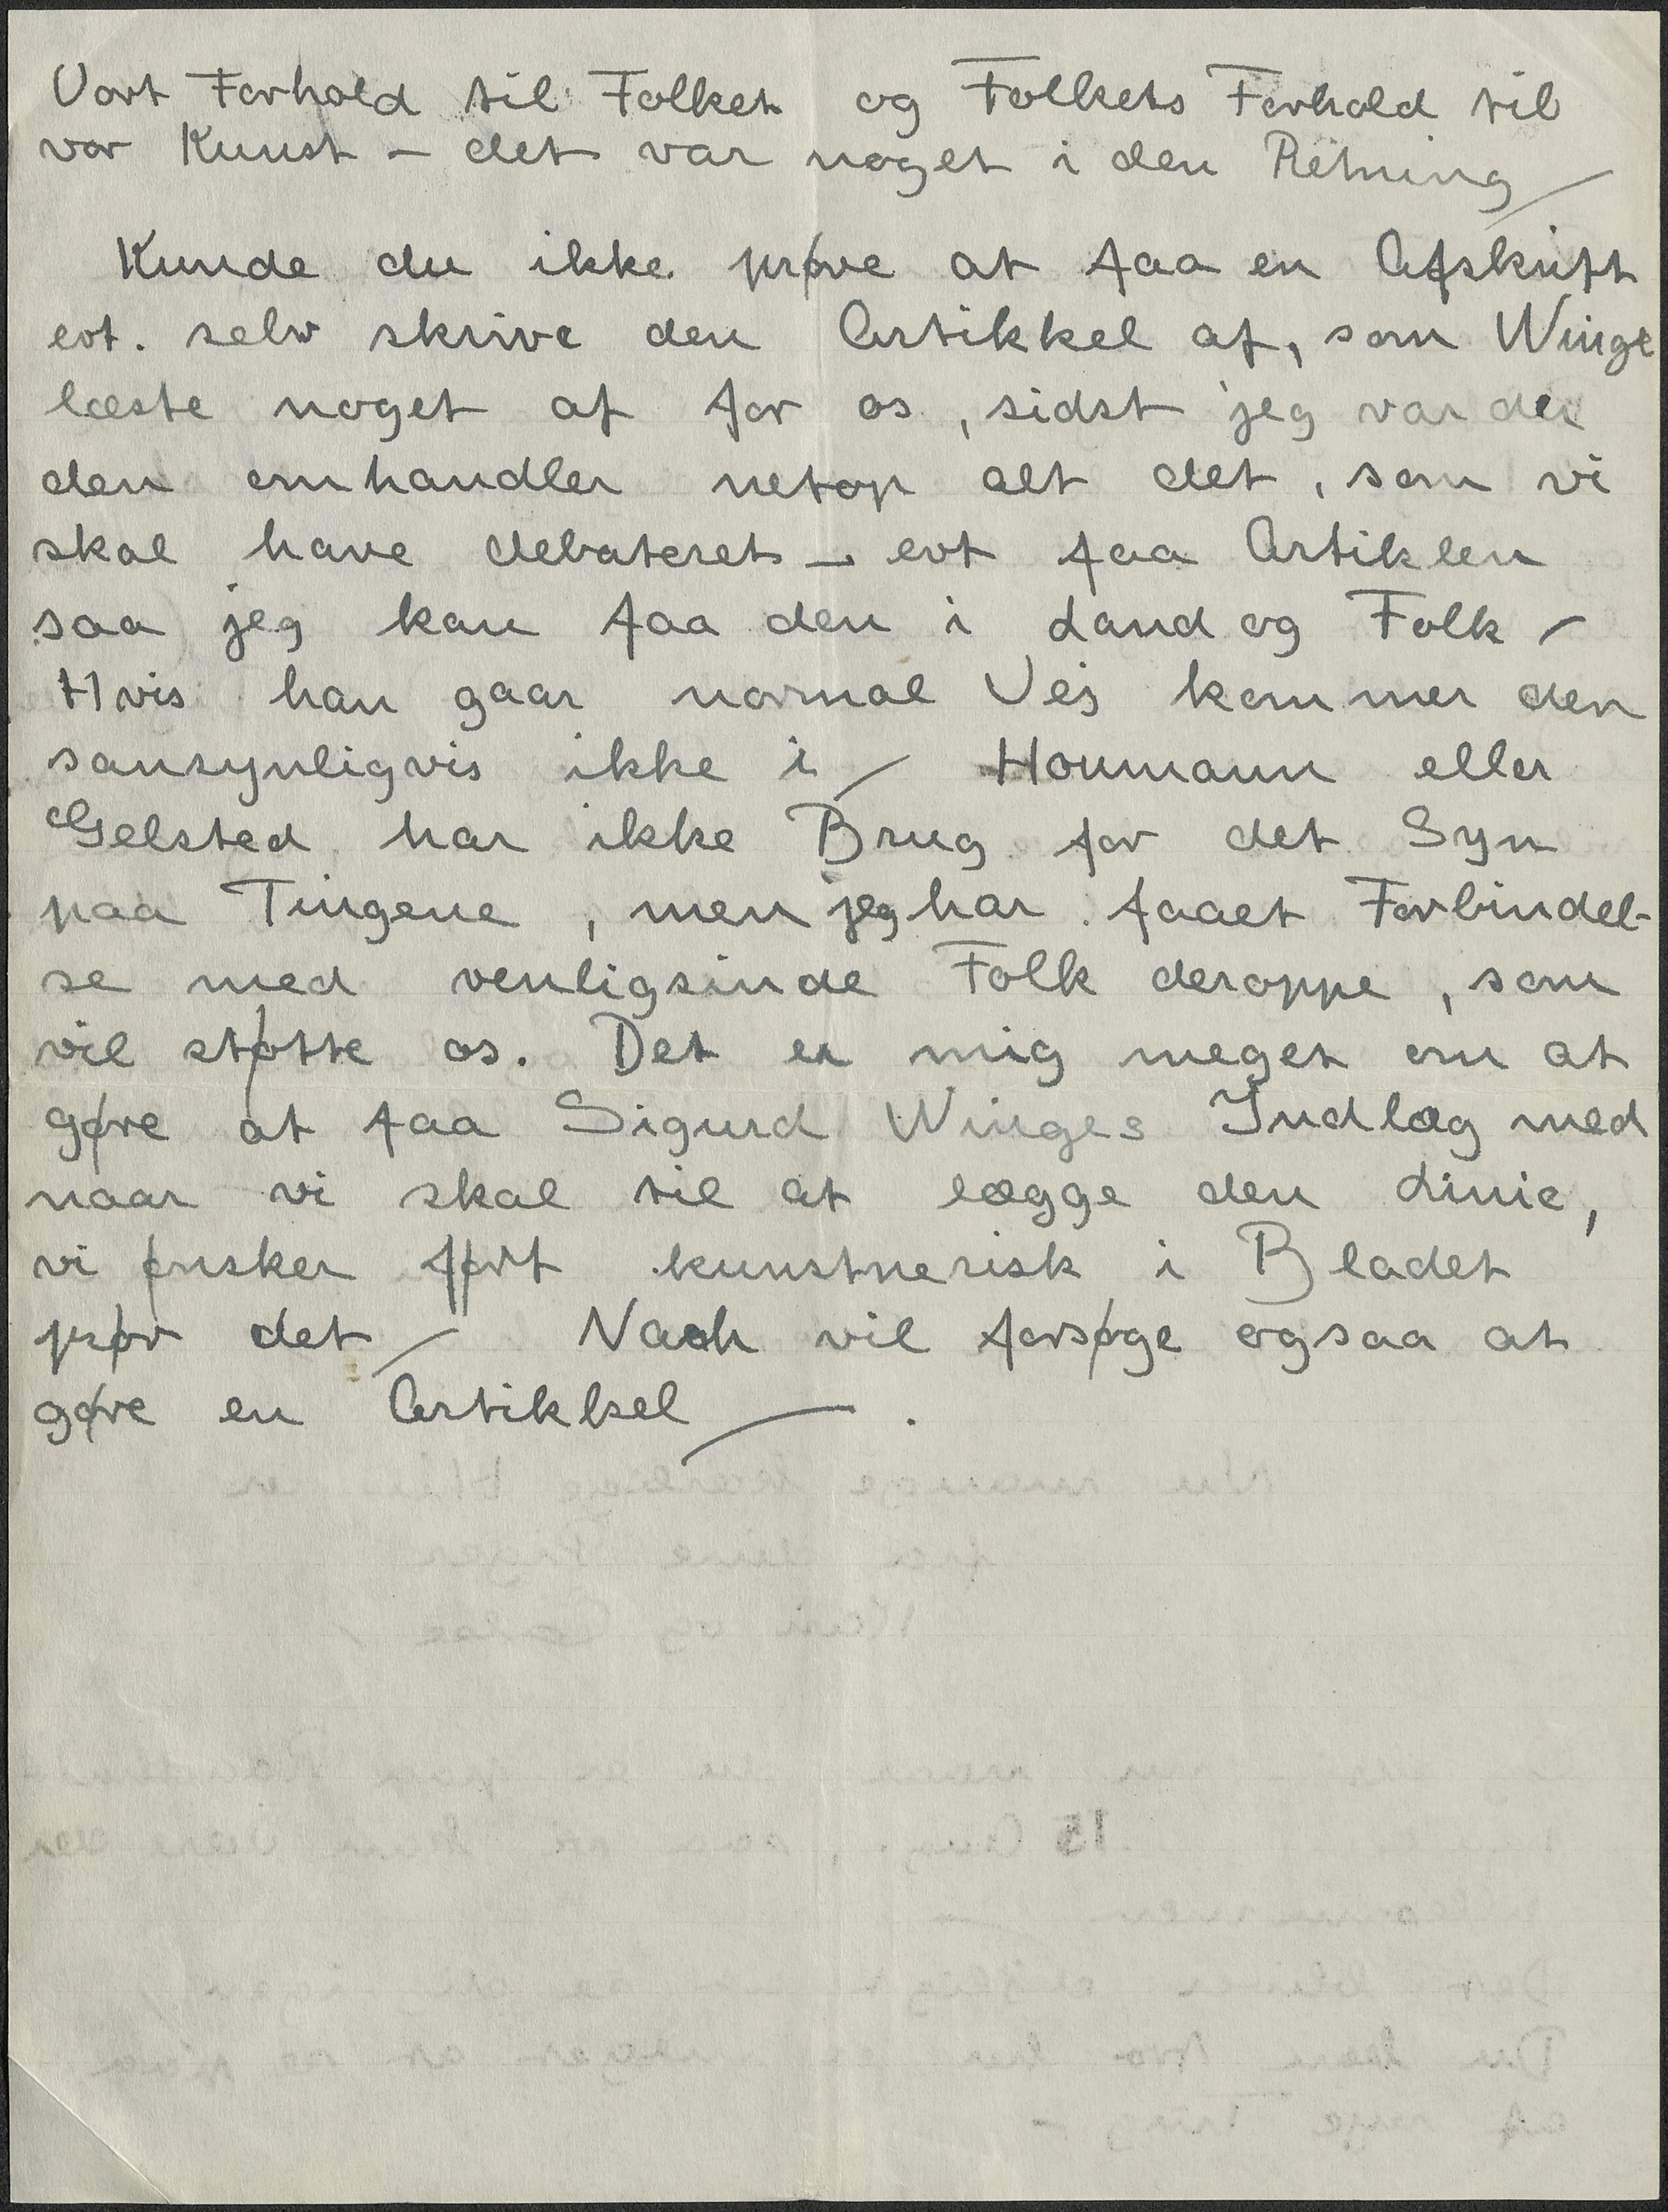 Vort Forhold til Folket og Folkets Forhold til
vor Kunst – det var noget i den Retning –
Kunde du ikke prøve at faa en Afskrift
evt. selv skrive den Artikkel af, som Winge
læste noget af for os, sidst jeg var der
den omhandler netop alt det, som vi
skal have debateret – evt faa Artiklen
saa jeg kan faa den i Land og Folk –
Hvis han gaar normal Vej kommer den
sansynligvis ikke i – Houmann eller
Gelsted har ikke Brug for det Syn
paa Tingene, men jeg har faaet Forbindel-
se med venligsinde Folk deroppe, som
vil støtte os. Det er mig meget om at
gøre at faa Sigurd Winges Indlæg med
naar vi skal til at lægge den Linie,
vi ønsker ført kunstnerisk i Bladet
prøv det – Nash vil forsøge ogsaa at
gøre en Artikkel – .